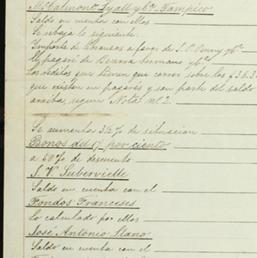 McCalmont Lyall y Cª. Tampico
Saldo en cuenta con ellos
Se rebaja lo siguiente.
Importe de a favor de J. P. Penny yCª
Al pagaré de hermano yCª
Los réditos que tienen que correr sobre los $363
que existen en pagarés y son parte del saldo
arriba, segun Nota nº 2.
Se aumentan 3½% de situacion
Bonos del p. por ciento
a 60% de descuento
J. V. Subervielle
Saldo en cuenta con el
Fondos Franceses
lo calculado por ellos
José Antonio Llano
Saldo en cuenta con el